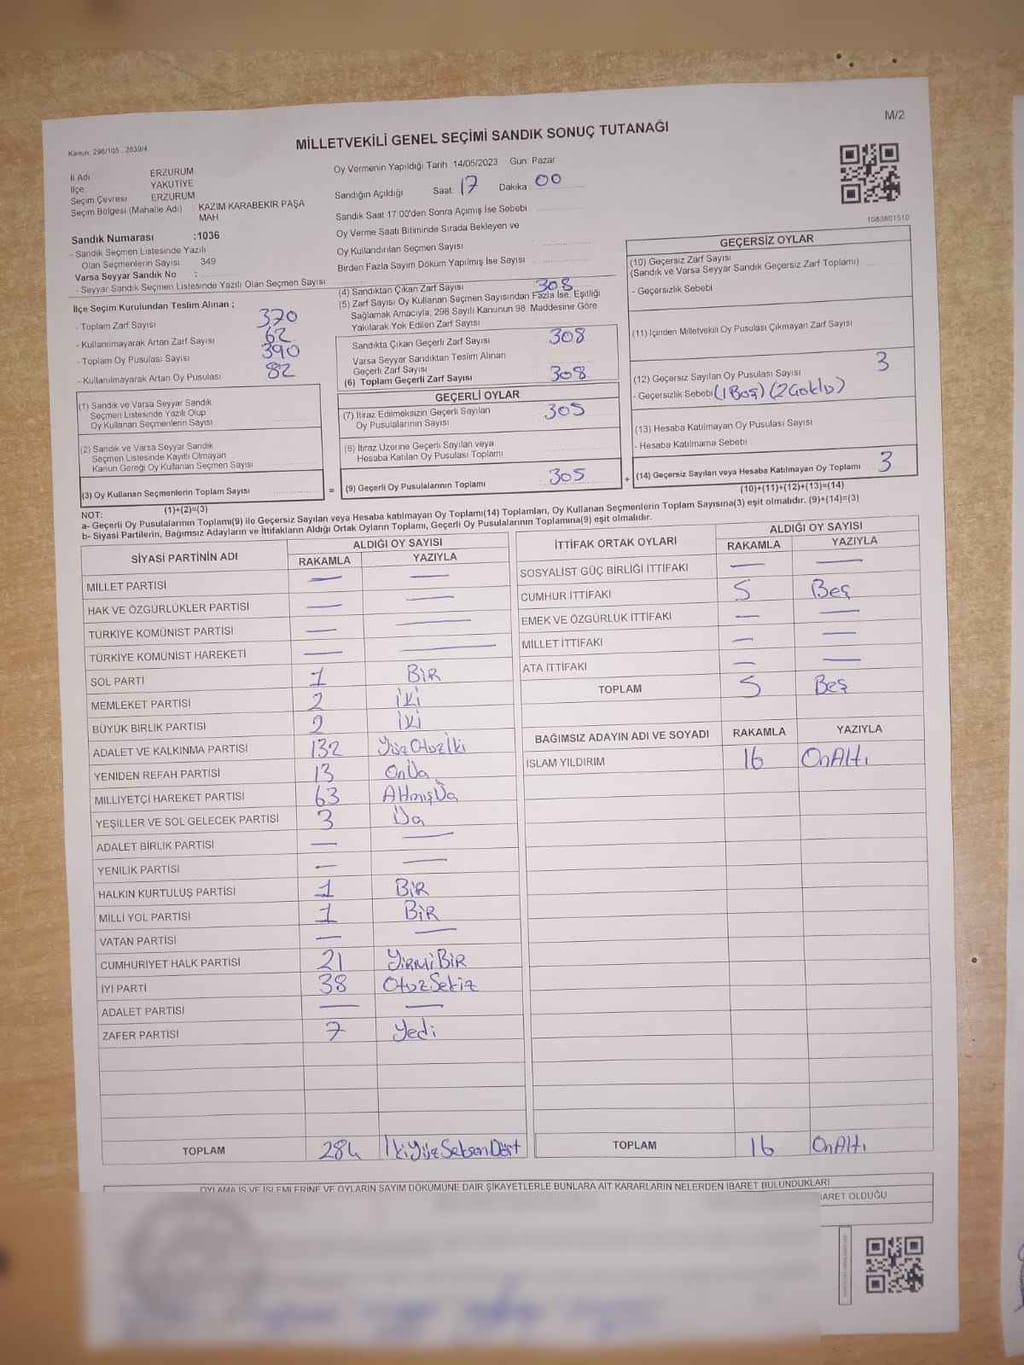 M/2
Kanun: 298/105 , 2839/4
MİLLETVEKİLİ GENEL SEÇİMİ SANDIK SONUÇ TUTANAĞI
İl Adı ERZURUM
İlçe YAKUTİYE
Seçim Çevresi ERZURUM
Seçim Bölgesi (Mahalle Adı) KAZIM KARABEKİR PAŞA MAH
Oy Vermenin Yapıldığı Tarih 14/05/2023 Gün: Pazar
Sandığın Açıldığı Saat 17 Dakika 00
Sandık Saat 17:00'den Sonra Açılmış İse Sebebi
Oy Verme Saati Bitiminde Sırada Bekleyen ve
Oy Kullandırılan Seçmen Sayısı
Birden Fazla Sayım Döküm Yapılmış İse Sayısı
1083801510
Sandık Numarası :1036
- Sandık Seçmen Listesinde Yazılı
Olan Seçmenlerin Sayısı 349
Varsa Seyyar Sandık No :
- Seyyar Sandık Seçmen Listesinde Yazılı Olan Seçmen Sayısı
İlçe Seçim Kurulundan Teslim Alınan ;
- Toplam Zarf Sayısı 370
- Kullanılmayarak Artan Zarf Sayısı 62
- Toplam Oy Pusulası Sayısı 390
- Kullanılmayarak Artan Oy Pusulası 82
(1) Sandık ve Varsa Seyyar Sandık
Seçmen Listesinde Yazılı Olup
Oy Kullanan Seçmenlerin Sayısı
(2) Sandık ve Varsa Seyyar Sandık
Seçmen Listesinde Kayıtlı Olmayan
Kanun Gereği Oy Kullanan Seçmen Sayısı
(3) Oy Kullanan Seçmenlerin Toplam Sayısı
(1)+(2)=(3)
(4) Sandıktan Çıkan Zarf Sayısı 308
(5) Zarf Sayısı Oy Kullanan Seçmen Sayısından Fazla İse, Eşitliği
Sağlamak Amacıyla, 298 Sayılı Kanunun 98. Maddesine Göre
Yakılarak Yok Edilen Zarf Sayısı
Sandıkta Çıkan Geçerli Zarf Sayısı 308
Varsa Seyyar Sandıktan Teslim Alınan
Geçerli Zarf Sayısı
(6) Toplam Geçerli Zarf Sayısı 308
GEÇERLİ OYLAR
(7) İtiraz Edilmeksizin Geçerli Sayılan
Oy Pusulalarının Sayısı 305
(8) İtiraz Üzerine Geçerli Sayılan veya
Hesaba Katılan Oy Pusulası Toplamı
= (9) Geçerli Oy Pusulalarının Toplamı 305
GEÇERSİZ OYLAR
(10) Geçersiz Zarf Sayısı
(Sandık ve Varsa Seyyar Sandık Geçersiz Zarf Toplamı)
- Geçersizlik Sebebi
(11) İçinden Milletvekili Oy Pusulası Çıkmayan Zarf Sayısı
(12) Geçersiz Sayılan Oy Pusulası Sayısı 3
- Geçersizlik Sebebi (1 Boş)
(13) Hesaba Katılmayan Oy Pusulası Sayısı
- Hesaba Katılmama Sebebi
+ (14) Geçersiz Sayılan veya Hesaba Katılmayan Oy Toplamı 3
(10)+(11)+(12)+(13)=(14)
NOT:
a- Geçerli Oy Pusulalarının Toplamı(9) ile Geçersiz Sayılan veya Hesaba katılmayan Oy Toplamı(14) Toplamları, Oy Kullanan Seçmenlerin Toplam Sayısına(3) eşit olmalıdır. (9)+(14)=(3)
b- Siyasi Partilerin, Bağımsız Adayların ve İttifakların Aldığı Ortak Oyların Toplamı, Geçerli Oy Pusulalarının Toplamına(9) eşit olmalıdır.
SİYASİ PARTİNİN ADI ALDIĞI OY SAYISI
RAKAMLA YAZIYLA
MİLLET PARTİSİ — —
HAK VE ÖZGÜRLÜKLER PARTİSİ — —
TÜRKİYE KOMÜNİST PARTİSİ — —
TÜRKİYE KOMÜNİST HAREKETİ — —
SOL PARTİ 1 BİR
MEMLEKET PARTİSİ 2 İKİ
BÜYÜK BİRLİK PARTİSİ 2 İKİ
ADALET VE KALKINMA PARTİSİ 132 YüzOtuzİki
YENİDEN REFAH PARTİSİ 13 OnÜç
MİLLİYETÇİ HAREKET PARTİSİ 63 AltmışÜç
YEŞİLLER VE SOL GELECEK PARTİSİ 3 Üç
ADALET BİRLİK PARTİSİ — —
YENİLİK PARTİSİ — —
HALKIN KURTULUŞ PARTİSİ 1 BİR
MİLLİ YOL PARTİSİ 1 BİR
VATAN PARTİSİ — —
CUMHURİYET HALK PARTİSİ 21 YİRMİBİR
İYİ PARTİ 38 OtuzSekiz
ADALET PARTİSİ — —
ZAFER PARTİSİ 7 Yedi
TOPLAM 284 İkiYüzSeksenDört
İTTİFAK ORTAK OYLARI ALDIĞI OY SAYISI
RAKAMLA YAZIYLA
SOSYALİST GÜÇ BİRLİĞİ İTTİFAKI — —
CUMHUR İTTİFAKI 5 Beş
EMEK VE ÖZGÜRLÜK İTTİFAKI — —
MİLLET İTTİFAKI — —
ATA İTTİFAKI — —
TOPLAM 5 Beş
BAĞIMSIZ ADAYIN ADI VE SOYADI RAKAMLA YAZIYLA
İSLAM YILDIRIM 16 OnAltı
TOPLAM 16 OnAltı
OYLAMA İŞ VE İŞLEMLERİNE VE OYLARIN SAYIM DÖKÜMÜNE DAİR ŞİKAYETLERLE BUNLARA AİT KARARLARIN NELERDEN İBARET BULUNDUKLARI
BARET OLDUĞU